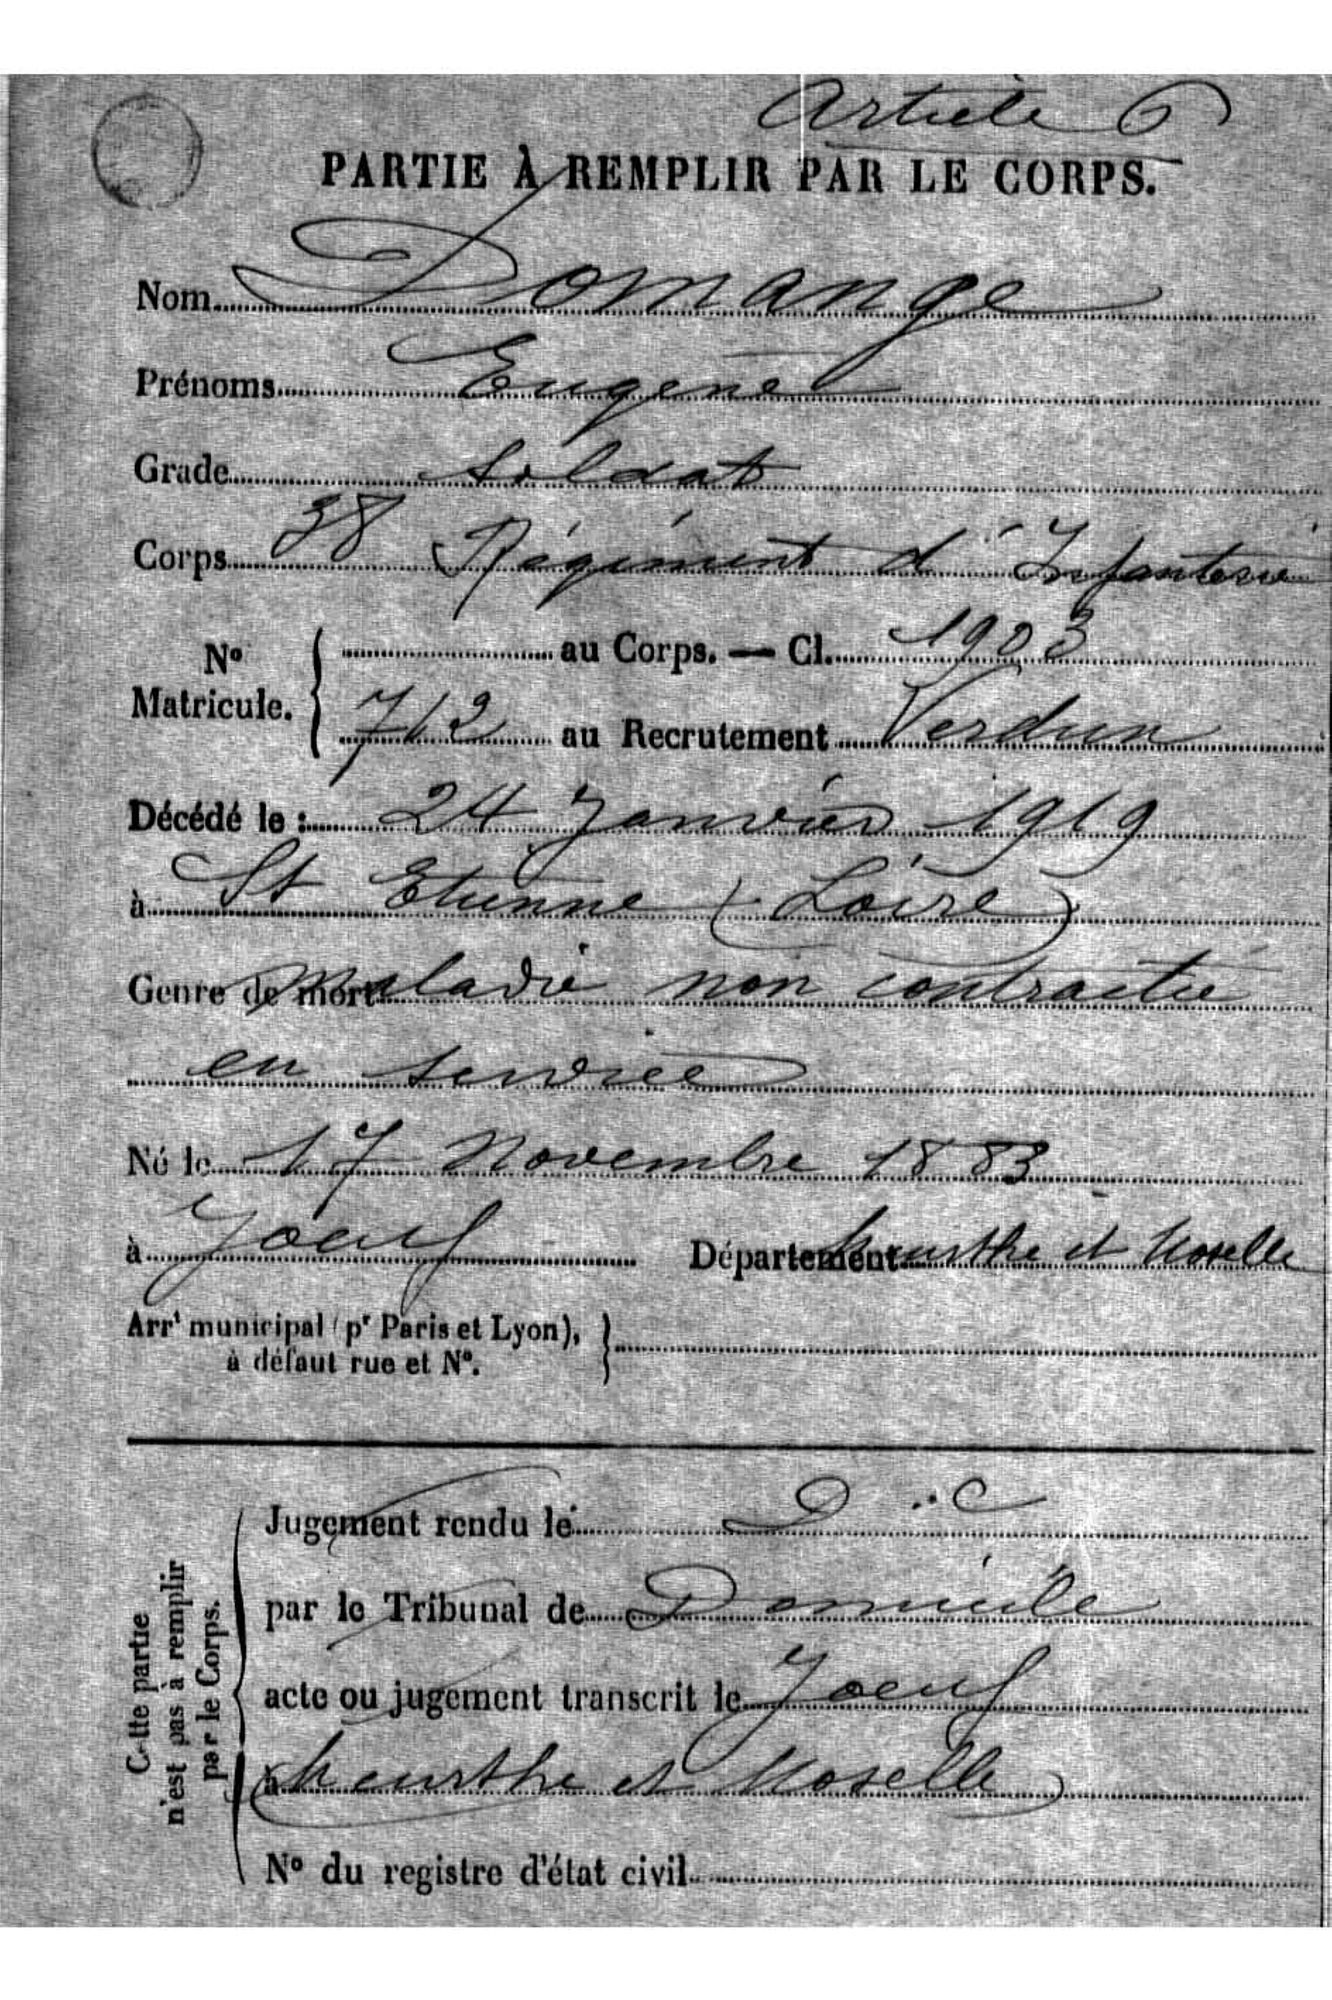 Article 6
PARTIE À REMPLIR PAR LE CORPS.
Nom Domange
Prénoms Eugène
Grade soldat
Corps 38 Régiment d'Infanterie
N° Matricule. { au Corps. — Cl. 1903
712 au Recrutement Verdun
Décédé le : 24 Janvier 1919
à St Etienne (Loire)
Genre de mort maladie non contractée
en service
Né le 17 Novembre 1883
à Joeuf Département Meurthe et Moselle
Arrt municipal (pr Paris et Lyon), }
à défaut rue et N°.
Cette partie
n'est pas à remplir
par le Corps.
Jugement rendu le
par le Tribunal de Domicile
acte ou jugement transcrit le Joeuf
à (Meurthe et Moselle)
N° du registre d'état civil